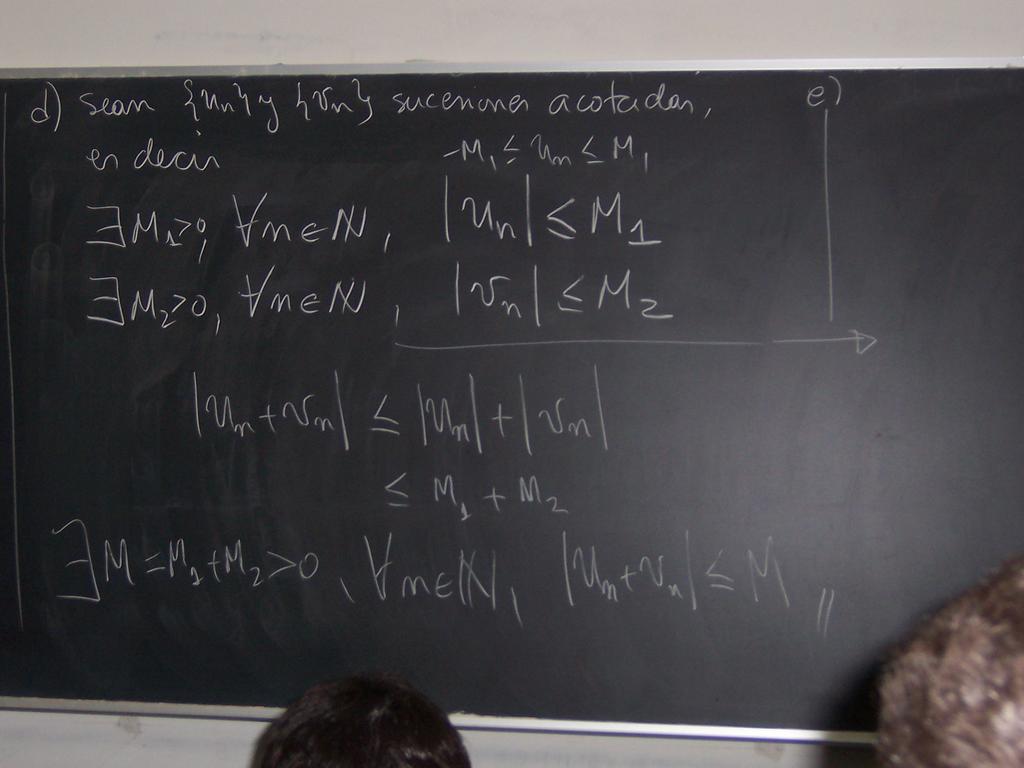 d) Sean {un} y {vn} sucesiones acotadas,
es decir
-M1 ≤ un ≤ M1
∃M1>0, ∀n∈ℕ, |un| ≤ M1
∃M2>0, ∀n∈ℕ, |vn| ≤ M2
|un+vn| ≤ |un|+|vn|
≤ M1 + M2
∃M=M1+M2>0, ∀n∈ℕ, |un+vn| ≤ M //
e)